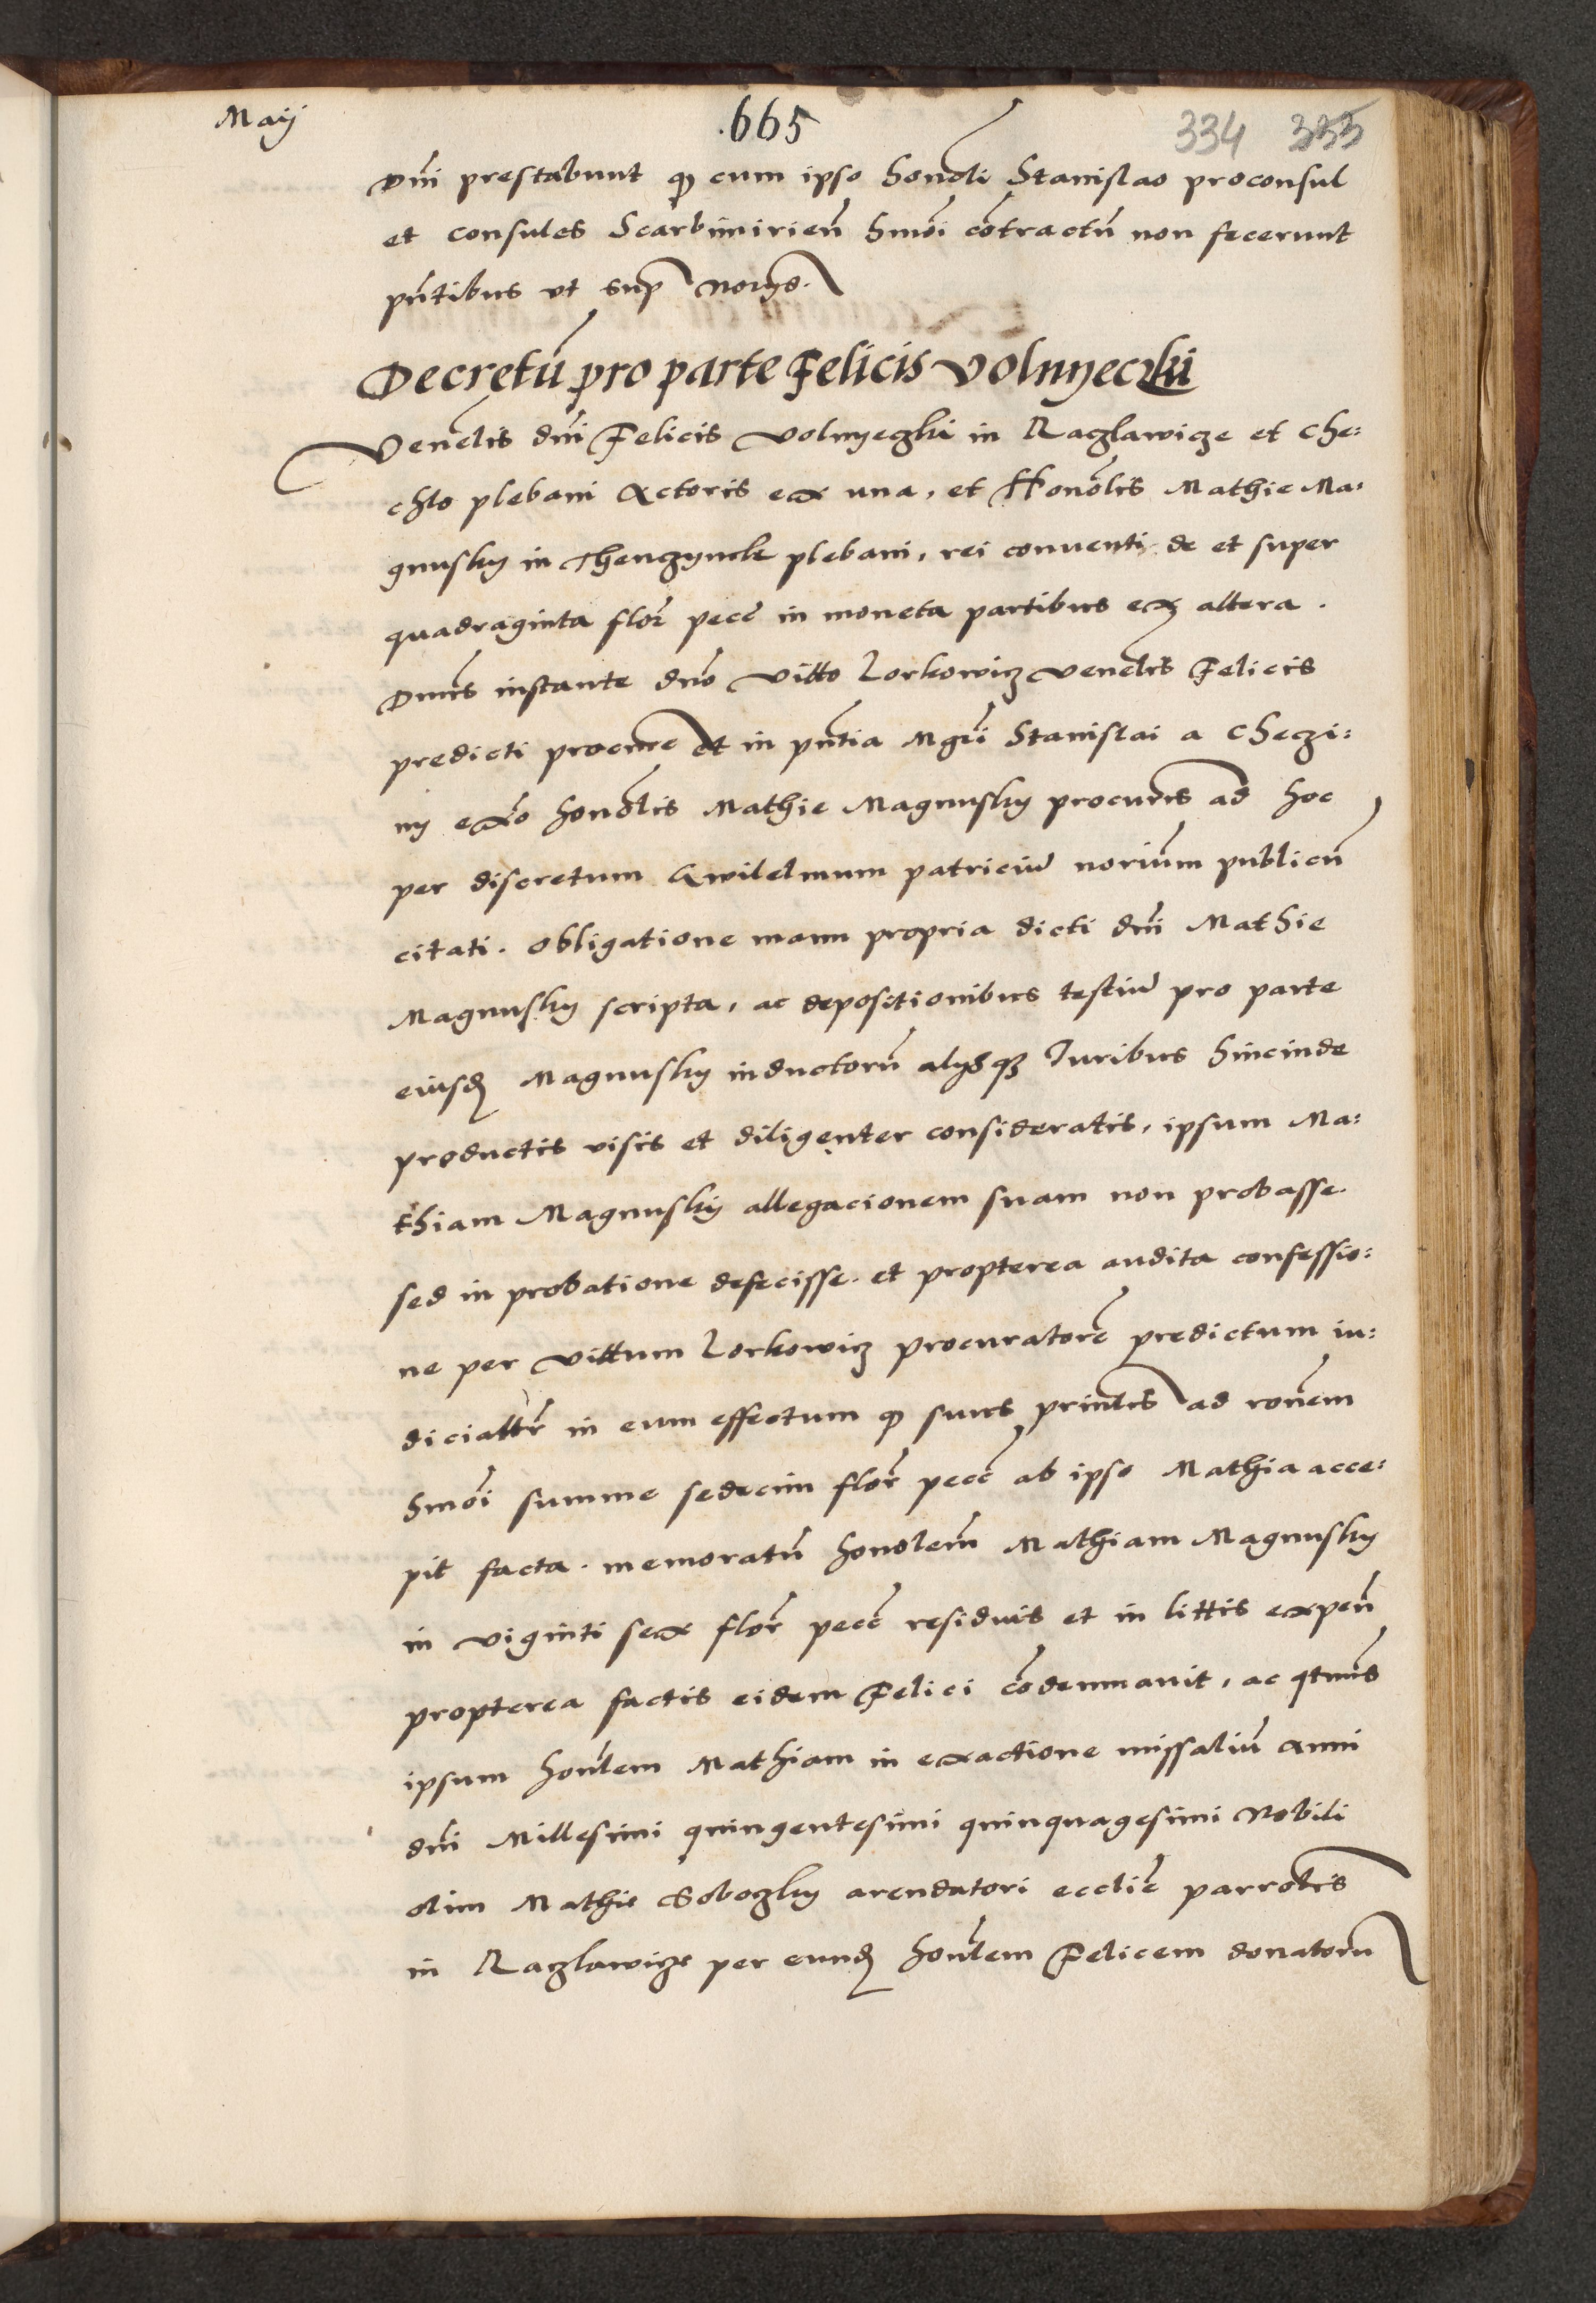 Maij
.665
334 335
Dni prestabunt q cum ipso honoli Stanislao proconsul
et consules Scarbimirien hmoi contractu non fecerunt
pntibus vt sup norys.
Decretu pro parte Felicis Volnyeczki
Venelis dni Felicis Volnyeczki in Raczlawicze et Che:
chlo plebani Actoris ex una, et Honolis Mathie Ma:
gnusky in Thenczynek plebani, rei conventi de et super
quadraginta flor pecc in moneta partibus ex altera.
Dnus instante dno Vitto Lorkowicz Venelis Felicis
predicti procure et in pntia Mgri Stanislai a Checzi:
ny exdo honolis Mathie Magnusky procuris ad hoc
per discretum Gwilelmum patriciu norium publicu
citati. obligatione manu propria dicti dni Mathie
Magnusky scripta, ac depositionibus testiu pro parte
eiusd Magnusky inductoru alysq Juribus hincinde
productis visis et diligenter consideratis, ipsum Ma:
thiam Magnusky allegacionem suam non probasse.
sed in probatione defecisse. et propterea audita confessio:
ne per Vittum Lorkowicz procuratore predictum iu:
dicialitr in eum effectum q suus prinlis ad ronem
hmoi summe sedecim flor pecc ab ipso Mathia acce:
pit facta. memoratu honolem Mathiam Magnusky
in viginti sex flor pecc residuis et in littis expen
propterea factis eidem Felici condemnavit, ac qtnus
ipsum honlem Mathiam in exactione missaliu Anni
dni Millesimi quingentesimi quinquagesimi Nobili
olim Mathie Soboczky arendatori ecclie parrolis
in Raczlawicze per eund honlem Felicem donatoru